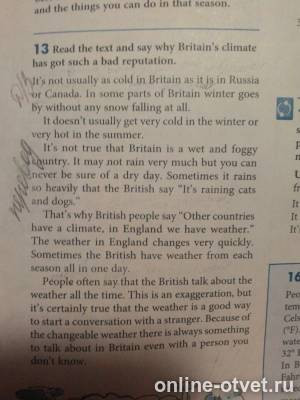 and the things you can do in that season.
13 Read the text and say why Britain's climate
has got such a bad reputation.
It's not usually as cold in Britain as it is in Russia
or Canada. In some parts of Britain winter goes
by without any snow falling at all.
It doesn't usually get very cold in the winter or
very hot in the summer.
It's not true that Britain is a wet and foggy
country. It may not rain very much but you can
never be sure of a dry day. Sometimes it rains
so heavily that the British say "It's raining cats
and dogs."
That's why British people say "Other countries
have a climate, in England we have weather."
The weather in England changes very quickly.
Sometimes the British have weather from each
season all in one day.
People often say that the British talk about the
weather all the time. This is an exaggeration, but
it's certainly true that the weather is a good way
to start a conversation with a stranger. Because of
the changeable weather there is always something
to talk about in Britain even with a person you
don't know.
16
Peo
tem
Cels
(°F).
wate
32°
In B
Fahr
online-otvet.ru